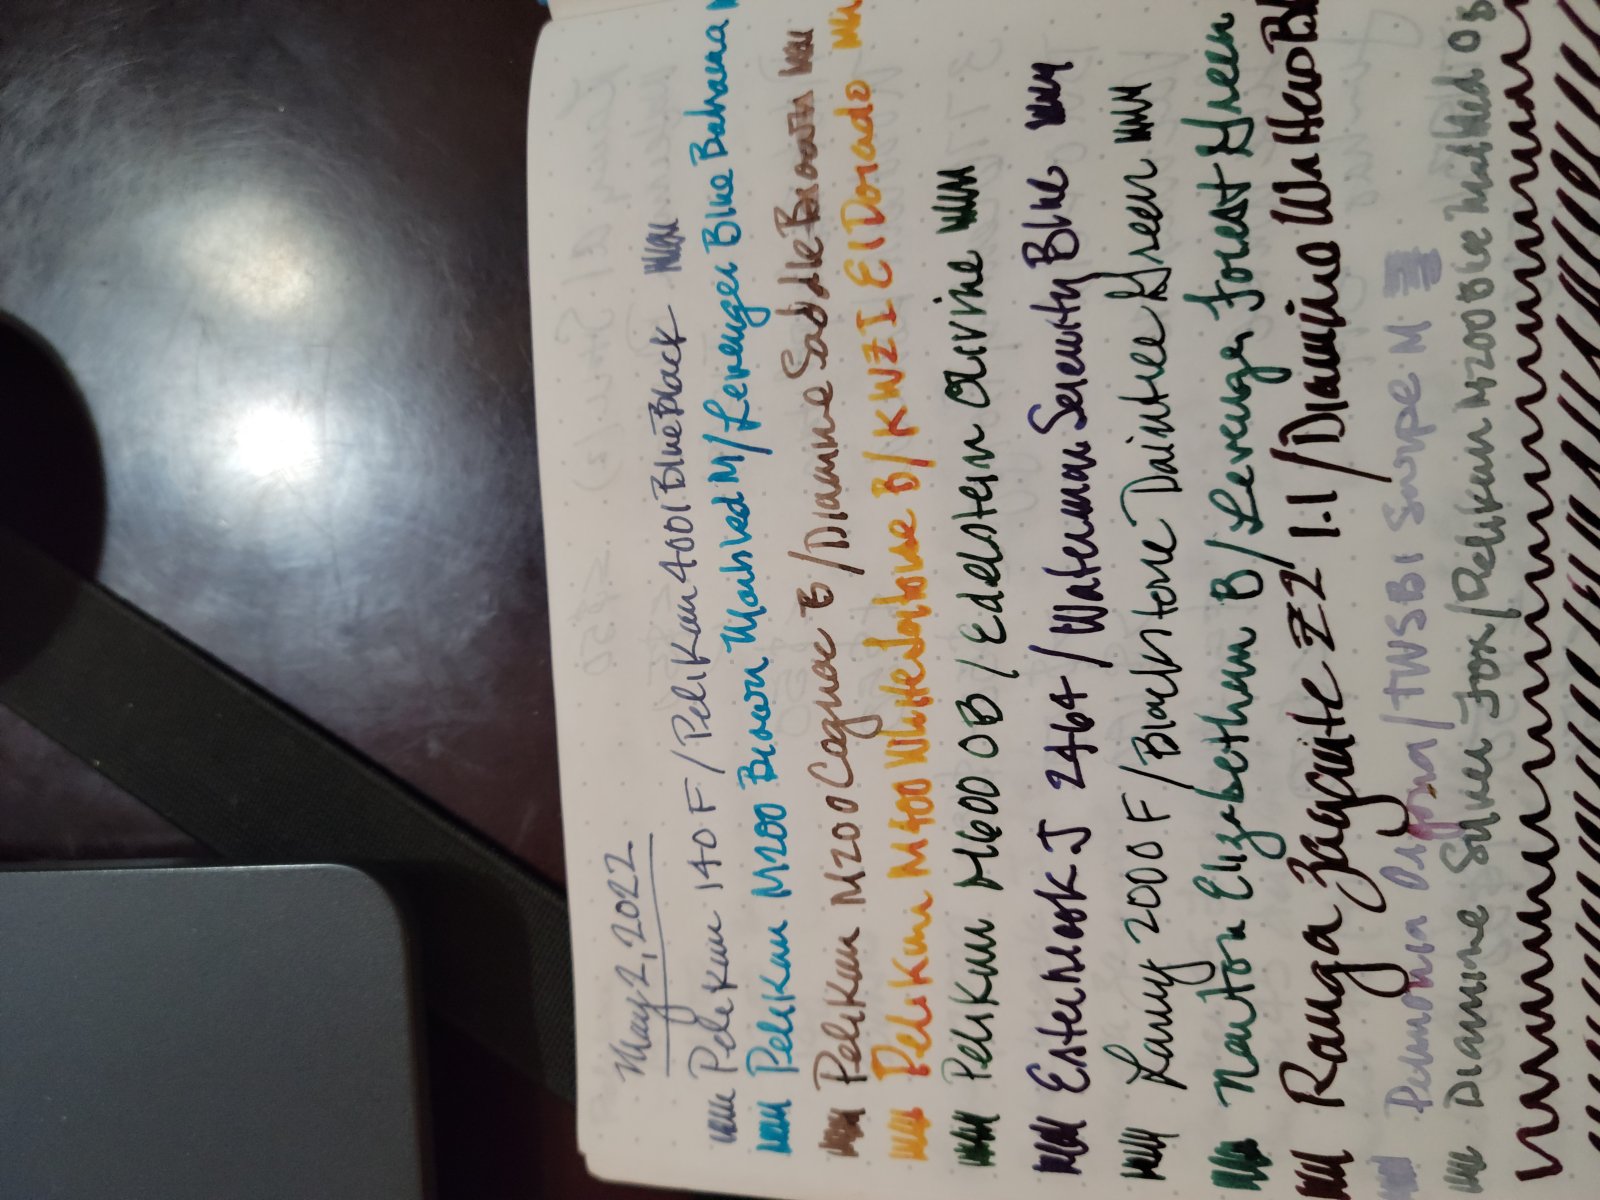 May 2, 2022
Pelikan 140 F / Pelikan 4001 Blue Black
Pelikan M200 Brown Marbled M / Levenger Blue Bahama
Pelikan M200 Cognac B / Diamine Saddle Brown
Pelikan M400 White Tortoise B / KWZI El Dorado
Pelikan M600 OB / Edelstein Olivine
Esterbrook J 2464 / Waterman Serenity Blue
Lamy 2000 F / Blackstone Daintree Green
Newton Elizabethan B / Levenger Forest Green
Ranga Zayante Z2 1.1 / Diamine
TWSBI Swipe M
Diamine Silver Fox / Pelikan M200